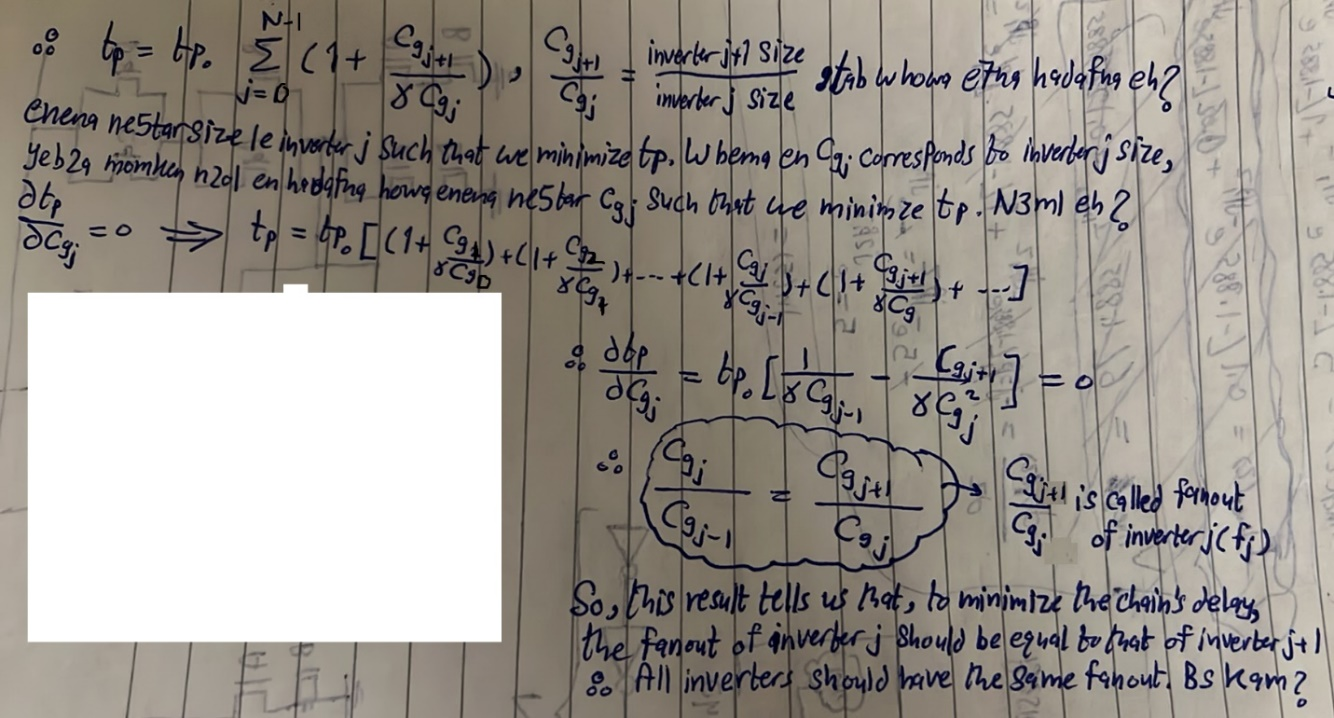 ∴ tp = tp₀ Σ_{j=0}^{N-1} (1 + C_{g_{j+1}} / γC_{g_j}), C_{g_{j+1}} / C_{g_j} = inverter j+1 size / inverter j size, stab whowa e7na hadafna eh?
enena ne5tar size le inverter j such that we minimize tp. W bema en C_{g_j} corresponds to inverter j size,
yeb2a momken n2ol en hadafna howa enena ne5tar C_{g_j} such that we minimize tp. N3ml eh?
∂tp / ∂C_{g_j} = 0 ⟹ tp = tp₀ [(1 + C_{g_1} / γC_{g_0}) + (1 + C_{g_2} / γC_{g_1}) + --- + (1 + C_{g_j} / γC_{g_{j-1}}) + (1 + C_{g_{j+1}} / γC_g) + ---]
∴ ∂tp / ∂C_{g_j} = tp₀ [1 / γC_{g_{j-1}} - C_{g_{j+1}} / γC_{g_j}²] = 0
∴ C_{g_j} / C_{g_{j-1}} = C_{g_{j+1}} / C_{g_j} → C_{g_{j+1}} / C_{g_j} is called fanout
of inverter j (f_j)
So, this result tells us that, to minimize the chain's delay,
the fanout of inverter j should be equal to that of inverter j+1
∴ All inverters should have the same fanout. Bs kam?